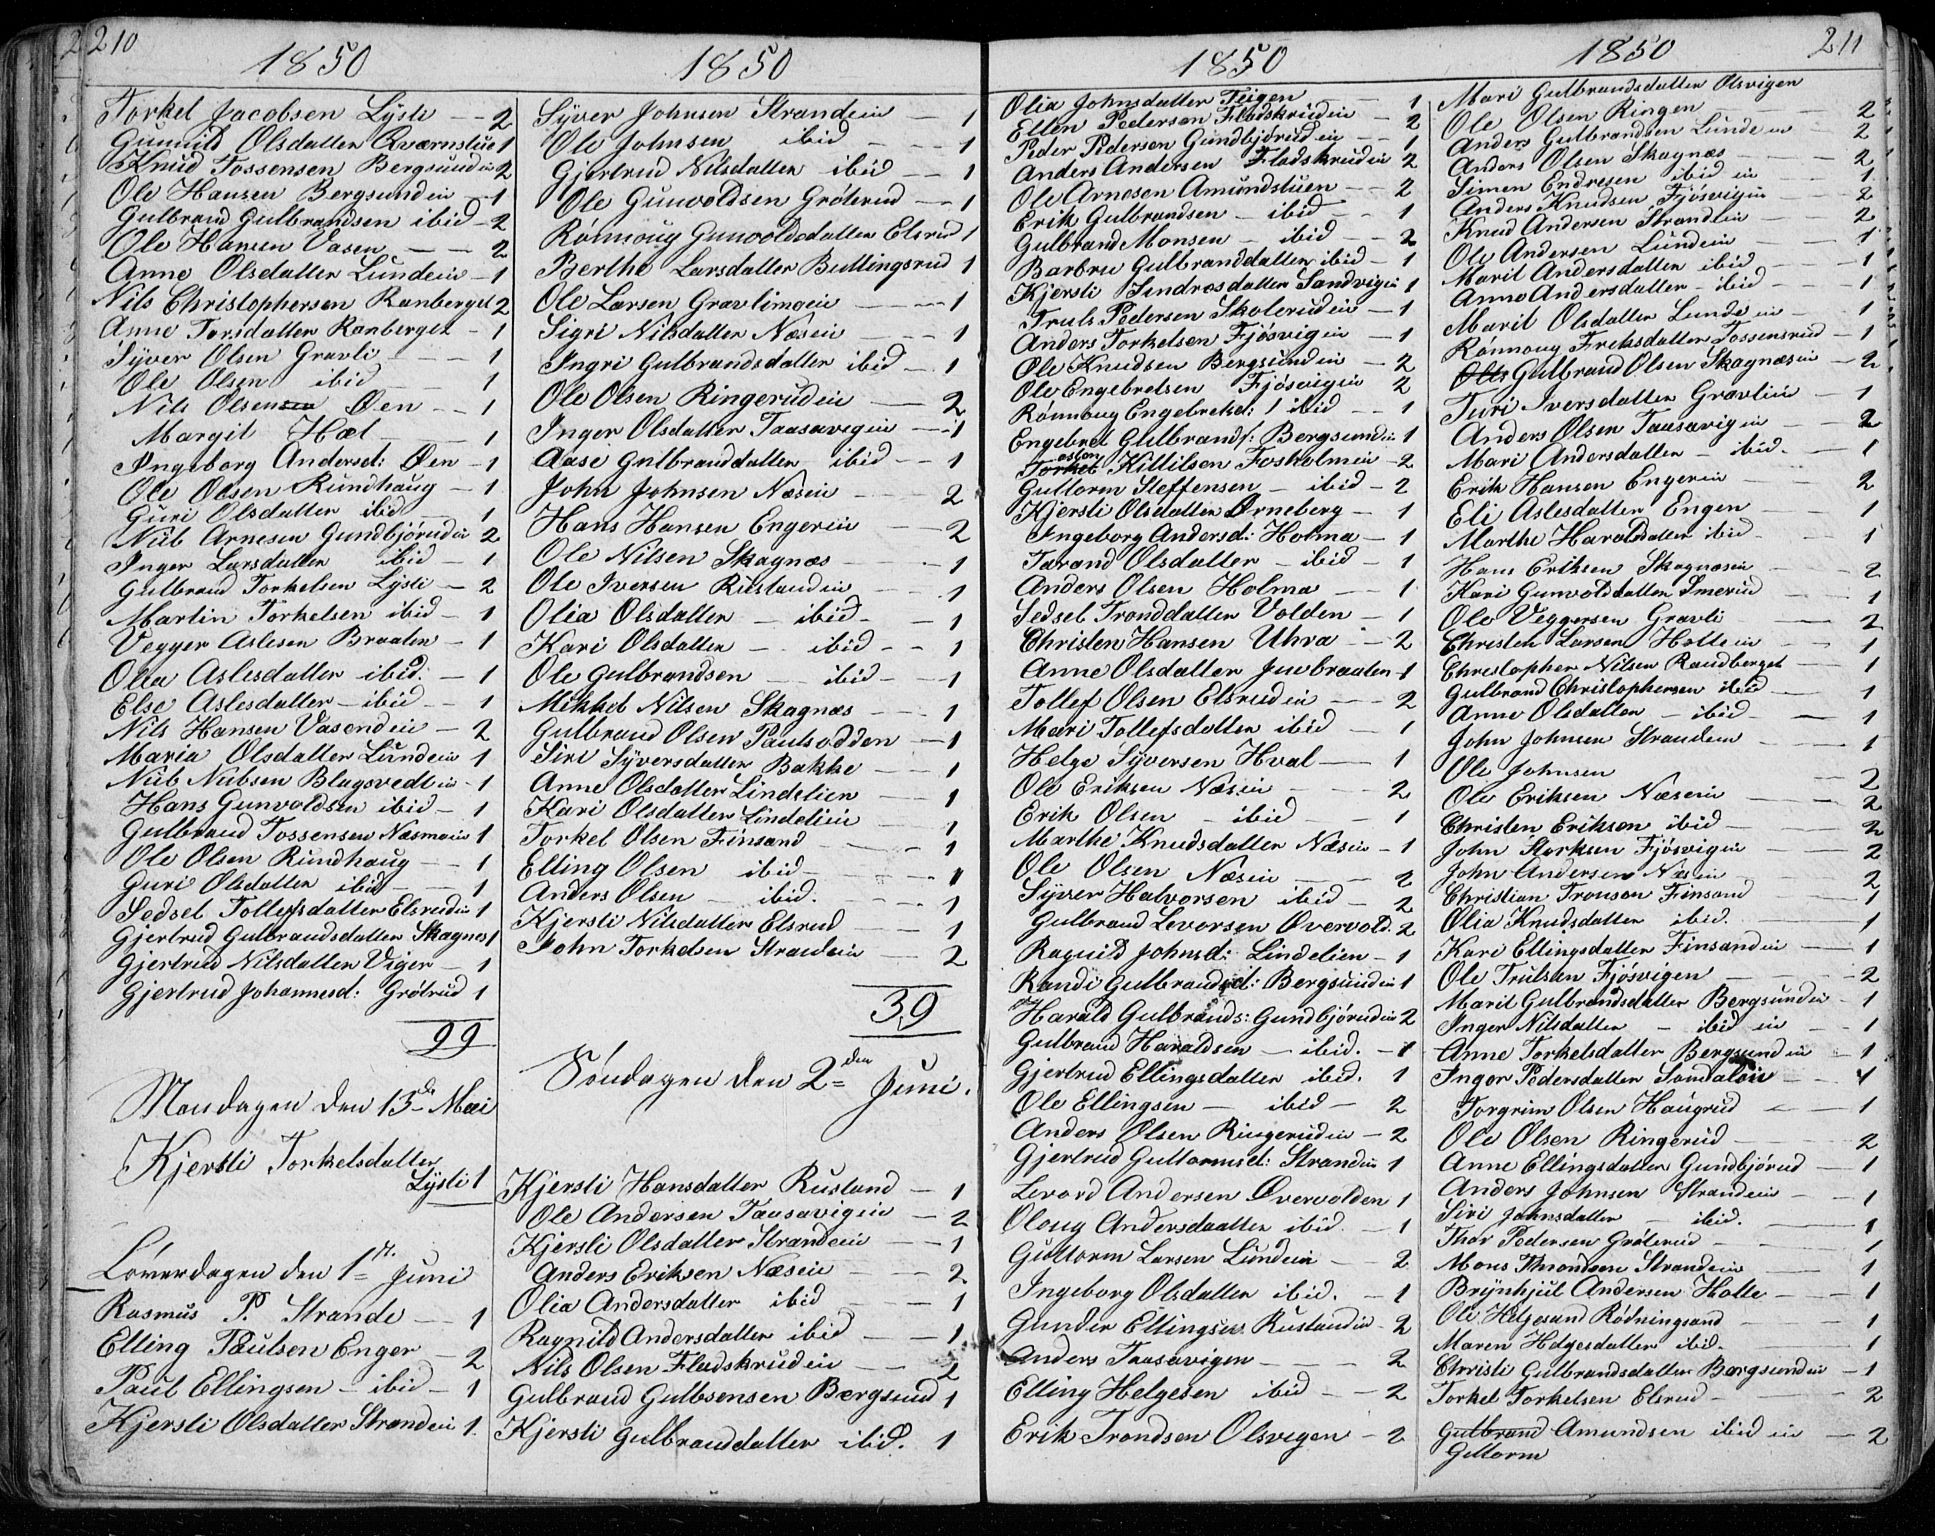 210
1850
Torkel Jacobsen Lysli — 2
Gunnild Olsdatter Kværnstuen 1
Knud Tossensen Bergsundein 2
Ole Hansen Bergsundein — 1
Gulbrand Gulbrandsen ibid — 2
Ole Hansen Vasen — — 2
Anne Olsdatter Lundein — 1
Nils Christophersen Ranberget 2
Anne Torsdatter Ranberget — 1
Syver Olsen Gravli — — 1
Ole Olsen ibid — 1
Nils Olsen Øen — — 1
Margit Hæl — — 1
Ingeborg Andersd: Øen — 1
Ole Olsen Rundhaug — 1
Guri Olsdatter ibid — 1
Nils Arnesen Gundbjørudin 2
Inger Larsdatter ibid — 1
Gulbrand Torkelsen Lysli — 2
Martin Torkelsen ibid — 1
Vegger Aslesen Braaten — 1
Olia Aslesdatter ibid. — 1
Else Aslesdatter — ibid — 1
Nils Hansen Vasendein — 2
Maria Olsdatter Lundein 1
Nils Nilsen Blagsvedtin — 1
Hans Gunvoldsen ibid — 1
Gulbrand Tossensen Næsmoein 1
Ole Olsen Rundhaug — 1
Guri Olsdatter ibid — 1
Sedsel Tollefsdatter Elsrudin 1
Gjertrud Gulbrandsdatter Skagnæs 1
Gjertrud Nilsdatter Viger — 1
Gjertrud Johannesd: Grøtrud 1
99
Mandagen den 13de Mai
Kjersti Torkelsdatter
Lysli 1
Løverdagen den 1st. Juni
Rasmus P. Strande — 1
Elling Paulsen Enger — 2
Paul Ellingsen — ibid — 1
Kjersti Olsdatter Strandein 1.
1850
Syver Johnsen Strandein — 1
Ole Johnsen ibid — — 1
Gjertrud Nilsdatter ibid — — 1
Ole Gunvoldsen Grøterud — — 1
Rønnoug Gunvoldsdatter Elsrud 1
Berthe Larsdatter Bullingsrud 1
Ole Larsen Gravlimoein — — 1
Sigri Nilsdatter Næsein — 1
Ingri Gulbrandsdatter ibid — 1
Ole Olsen Ringerudein — 2
Inger Olsdatter Taasavigein — 1
Aase Gulbranddatter ibid — 1
John Johnsen Næsein — — 2
Hans Hansen Engerein — 2
Ole Nilsen Skagnæs — — 1
Ole Iversen Rustandein — — 1
Olia Olsdatter — ibid — — 1
Kari Olsdatter — ibid — — 1
Ole Gulbrandsen — ibid — — 1
Mikkel Nilsen Skagnæs — — 1
Gulbrand Olsen Paulsodden — 1
Siri Syversdatter Bakke — — 1
Anne Olsdatter Lindelien — — 1
Kari Olsdatter Lindelien 1
Torkel Olsen Finsand — — 1
Elling Olsen ibid — — 1
Anders Olsen — ibid. — — 1
Kjersti Nilsdatter Elsrud — 1
John Torkelsen Strandein — 2
39
Søndagen den 2den Juni.
Kjersti Hansdatter Rustand — 1
Ole Andersen Taasavigein — 2
Kjersti Olsdatter Strandein — 1
Anders Eriksen Næsein — — 2
Olia Andersdatter ibid — — 1
Ragnild Andersdatter ibid — — 1
Nils Olsen Fladskrudein — — 2
Gulbrand Gulbsensen Bergsund 1
Kjersti Gulbranddatter ibid. 1
1850
Olia Johnsdatter Teigen — 1
Ellen Pedersen Fladskrudein — 2
Peder Pedersen Gundbjørudein — 1
Anders Andersen Fladskrudein 2
Ole Arnesen Amundstuen — — 2
Erik Gulbrandsen — ibid — — 1
Gulbrand Monsen — ibid — — 2
Barbru Gulbranddatter ibid — 1
Kjersti Sindresdatter Sandvigin 1
Truls Pedersen Skolerudein — 1
Anders Torkelsen Fjøsvigein — 1
Ole Knudsen Bergsundein — 2
Ole Engebretsen Fjøsvigein 2
Rønnoug Engebretsd: ibid — — 1
Engebret Gulbrands: Bergsundein 1
Torkel Kittilsen Fosholmein — 2
Guttorm Steffensen — ibid — 2
Kjersti Olsdatter Ørneberg — 1
Ingeborg Andersd: Holma — 1
Tarand Olsdatter — ibid — 1
Anders Olsen Holma — 1
Sedsel Tronddatter Volden — 1
Christen Hansen Uhva — 2
Anne Olsdatter Juvbraaten 1
Tollef Olsen Elsrudin — — 2
Mari Tollefsdatter ibid — 1
Helge Syversen Hval — 1
Ole Eriksen Næsein — — 2
Erik Olsen — ibid — — 1
Marthe Knudsdatter Næsein — 1
Ole Olsen Næsein — — 2
Syver Halvorsen ibid — 2
Gulbrand Leversen Øvervold. 2
Ragnild Johnsd: Lindelien — 1
Randi Gulbrandsd: Bergsundein 1
Harald Gulbrands: Gundbjørudein 2
Gulbrand Haraldsen — ibid. — 1
Gjertrud Ellingsdatter ibid. 1
Ole Ellingsen — ibid — 2
Anders Olsen Ringerudein — 2
Gjertrud Guttormsd: Strandein 1
Levord Andersen Øvervolden 1
Oloug Andersdaatter ibid. — 1
Guttorm Larsen Lundein — 2
Ingeborg Olsdatter ibid. — 1
Gunder Ellingsen Rustandin — 2
Anders Taasavigen — — 2
Elling Helgesen ibid — — 2
Erik Trondsen Olsvigen — 2
1850
211
Mari Gulbrandsdatter Olsvigen
Ole Olsen Ringen — 2
Anders Gulbrandsen Lundein — 2
Anders Olsen Skagnæs — 2
Simen Endresen ibid in — 1
Anders Knudsen Fjøsvigin — 2
Knud Andersen Strandein — 2
Ole Andersen Lundein — 1
Marit Andersdatter ibid — 1
Anne Andersdatter — ibid — 1
Marit Olsdatter Lundein — 1
Rønnoug Eriksdatter Tossensrud — 1
Gulbrand Olsen Skagnæsin — 2
Turi Iversdatter Gravlien — 1
Anders Olsen Taasavigen — 2
Mari Andersdatter — ibid. — 1
Erik Hansen Engerein — 2
Eli Aslesdatter Engen — 1
Marthe Haralddatter ibid — 1
Hans Eriksen Skagnæsein — 2
Kari Gunvolddatter Smerud — 1
Ole Veggersen Gravli — 2
Christen Larsen Hollein — 1
Christopher Nilsen Randberget — 1
Gulbrand Christophersen ibid — 1
Anne Olsdatter — ibid — — 1
John Johnsen Strandein — 1
Ole Johnsen — 2
Ole Eriksen Næsein — 2
Christen Eriksen ibid — 2
John Fjøsvigein — 2
John Andersen Næsein — 2
Christian Tronsen Finsand — 1
Olia Knudsdatter ibid. — 1
Kari Ellingsdatter Finsandein — 1
Ole Trulsen Fjøsvigen — 2
Marit Gulbrandsdatter Bergsundin — 1
Inger Nilsdatter — ibid in — 1
Anne Torkelsdatter Bergsundin — 1
Inger Pedersdatter — 1
Torgrim Olsen Haugrud — — 1
Ole Olsen Ringerud — 2
Anne Ellingsdatter Gundbjørud — 1
Anders Johnsen Strandein — 1
Siri Johnsdatter — ibid. — 1
Thor Pedersen Grøterud — 1
Mons Throndsen Strandein — 1
Brynhjul Andersen Holle — 1
Ole Helgesand Rødningsand — 1
Maren Helgesdatter ibid. — 1
Christi Gulbrandsdatter Bergsundein — 1
Torkel Torkelsen Elsrud — 2
Gulbrand Amundsen ibid in — 2
Guttorm